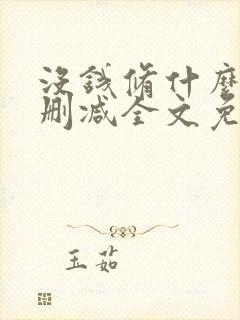 没錢脩什麼
刪減全文免
玉茹